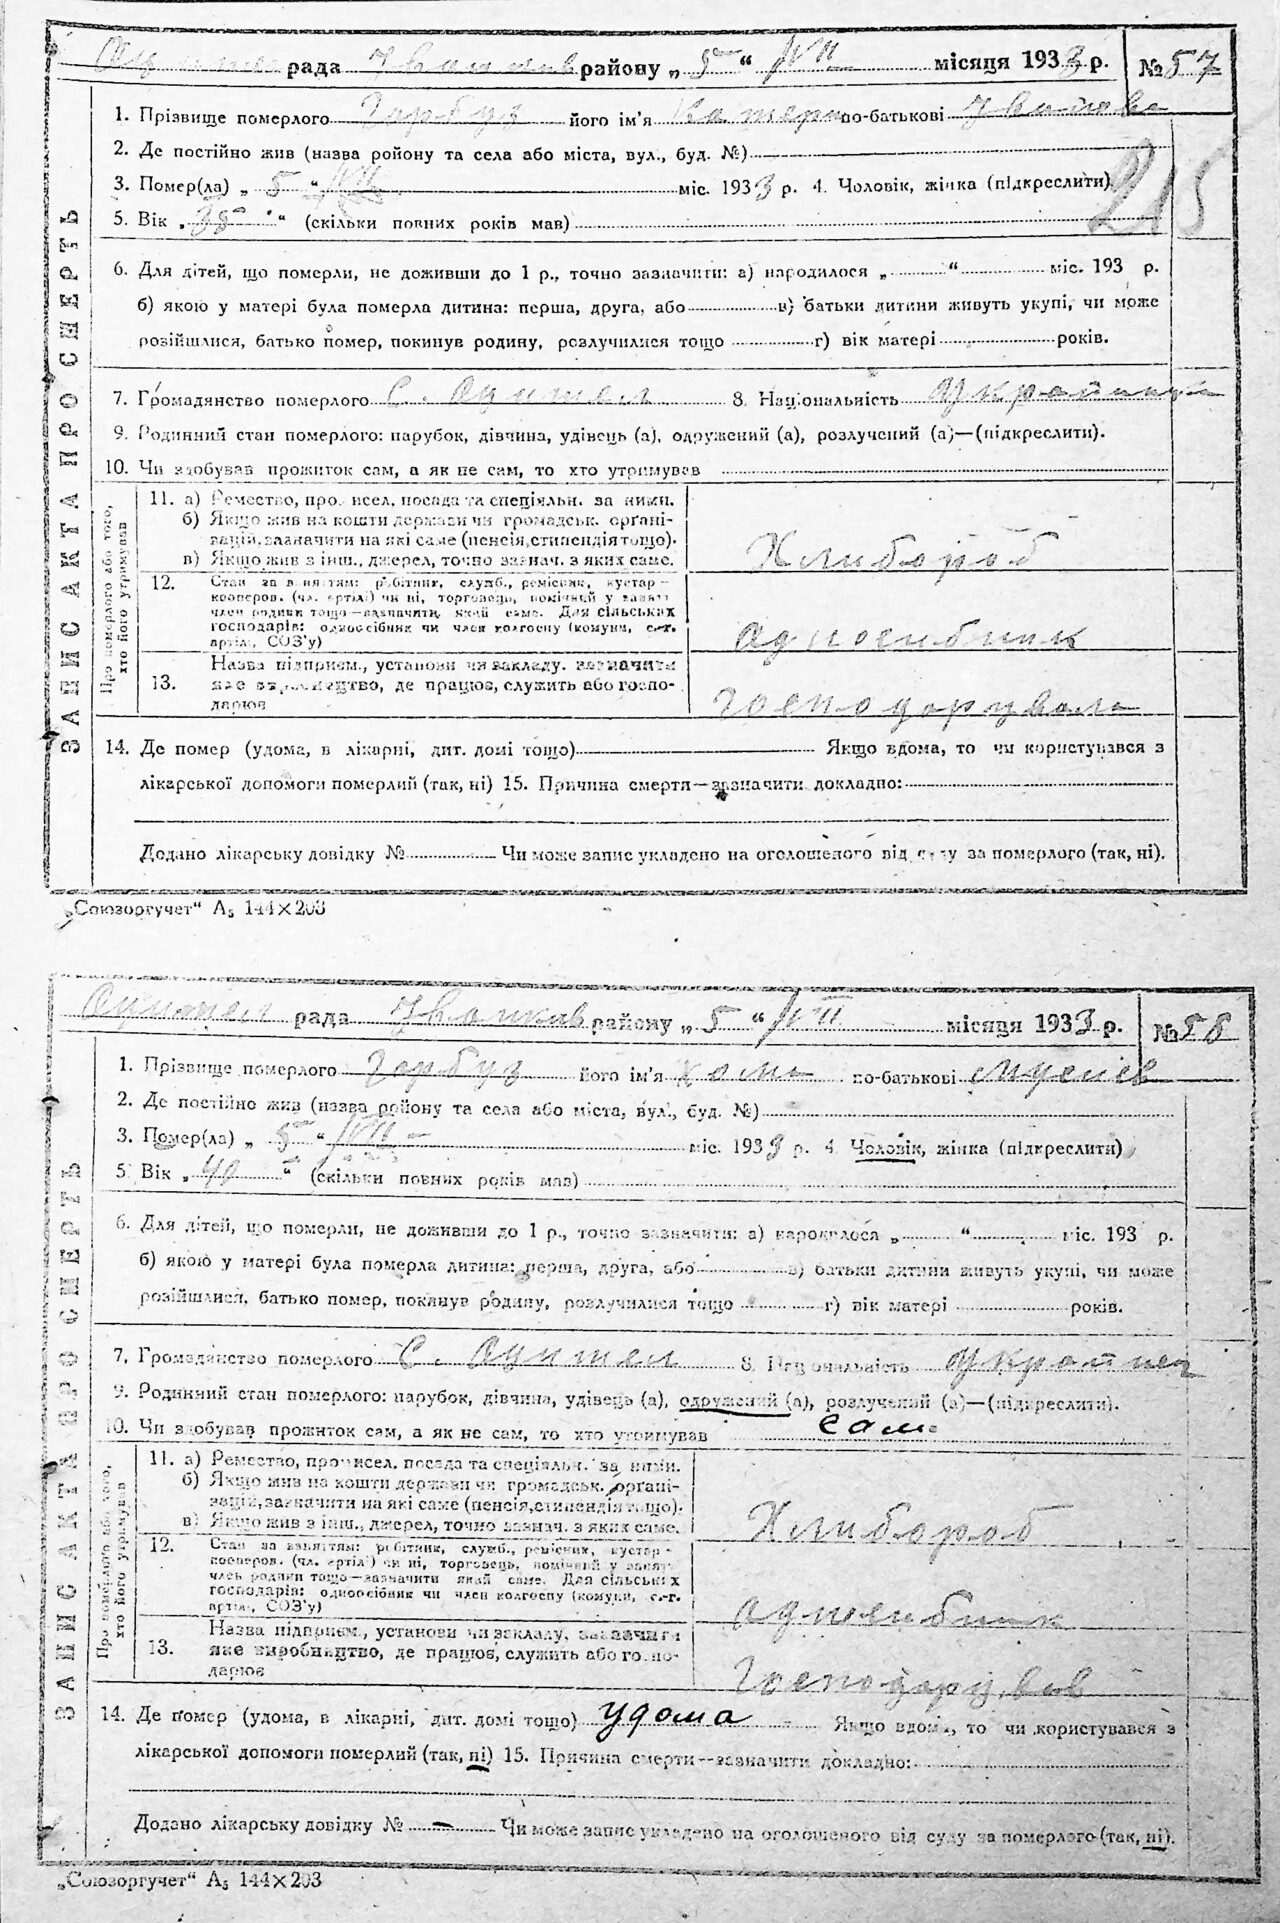 рада Іванков району „ 5 “ /VII місяця 1933 р. № 57
1. Прізвище померлого Гарбуз його ім'я Катери по-батькові Іванова
2. Де постійно жив (назва ройону та села або міста, вул., буд. №)
3. Помер(ла) „ 5 “ /VII міс. 1933 р. 4. Чоловік, жінка (підкреслити)
215
5. Вік „ 38 “ (скільки повних років мав)
6. Для дітей, що померли, не доживши до 1 р., точно зазначити: а) народилося „ “ міс. 193 р.
б) якою у матері була померла дитина: перша, друга, або в) батьки дитини живуть укупі, чи може
розійшлися, батько помер, покинув родину, розлучилися тощо г) вік матері років.
7. Громадянство померлого С. 8. Національність Українка
9. Родинний стан померлого: парубок, дівчина, удівець (а), одружений (а), розлучений (а)—(підкреслити).
10. Чи здобував прожиток сам, а як не сам, то хто утримував
ЗАПИС АКТА ПРО СМЕРТЬ
Про померлого або того, хто його утримував
11. а) Ремество, промисел, посада та спеціяльн. за ними.
б) Якщо жив на кошти держави чи громадськ. орґані-
зацій, зазначити на які саме (пенсія, стипендія тощо).
в) Якщо жив з інш., джерел, точно зазнач. з яких саме.
Хлибороб
12. Стан за заняттям: робітник, служб., ремісник, кустар-
кооперов. (чл. артілі) чи ні, торговець, помічний у занят.
член родини тощо—зазначити який саме. Для сільських
господарів: одноосібник чи член колгоспу (комуни, с.-г.
артілі, СОЗ'у)
Адноосибник
13. Назва підприєм., установи чи закладу, зазначити
яке виробництво, де працює, служить або госпо-
дарює
Господарувала
14. Де помер (удома, в лікарні, дит. домі тощо) Якщо вдома, то чи користувався з
лікарської допомоги померлий (так, ні) 15. Причина смерти—зазначити докладно:
Додано лікарську довідку № Чи може запис укладено на оголошеного від суду за померлого (так, ні).
„Союзоргучет“ А5 144×203
рада Іванков району „ 5 “ /VII місяця 1933 р. № 58
1. Прізвище померлого Гарбуз його ім'я Хома по-батькові Мусієв
2. Де постійно жив (назва ройону та села або міста, вул., буд. №)
3. Помер(ла) „ 5 “ /VII міс. 1933 р. 4. Чоловік, жінка (підкреслити)
5. Вік „ 40 “ (скільки повних років мав)
6. Для дітей, що померли, не доживши до 1 р., точно зазначити: а) народилося „ “ міс. 193 р.
б) якою у матері була померла дитина: перша, друга, або в) батьки дитини живуть укупі, чи може
розійшлися, батько помер, покинув родину, розлучилися тощо г) вік матері років.
7. Громадянство померлого С. 8. Національність Українец
9. Родинний стан померлого: парубок, дівчина, удівець (а), одружений (а), розлучений (а)—(підкреслити).
10. Чи здобував прожиток сам, а як не сам, то хто утримував сам
ЗАПИС АКТА ПРО СМЕРТЬ
Про померлого або того, хто його утримував
11. а) Ремество, промисел, посада та спеціяльн. за ними.
б) Якщо жив на кошти держави чи громадськ. орґані-
зацій, зазначити на які саме (пенсія, стипендія тощо).
в) Якщо жив з інш., джерел, точно зазнач. з яких саме.
Хлибороб
12. Стан за заняттям: робітник, служб., ремісник, кустар-
кооперов. (чл. артілі) чи ні, торговець, помічний у занят.
член родини тощо—зазначити який саме. Для сільських
господарів: одноосібник чи член колгоспу (комуни, с.-г.
артілі, СОЗ'у)
адноосибник
13. Назва підприєм., установи чи закладу, зазначити
яке виробництво, де працює, служить або госпо-
дарює
Господарував
14. Де помер (удома, в лікарні, дит. домі тощо) удома Якщо вдома, то чи користувався з
лікарської допомоги померлий (так, ні) 15. Причина смерти—зазначити докладно:
Додано лікарську довідку № — Чи може запис укладено на оголошеного від суду за померлого (так, ні).
„Союзоргучет“ А5 144×203